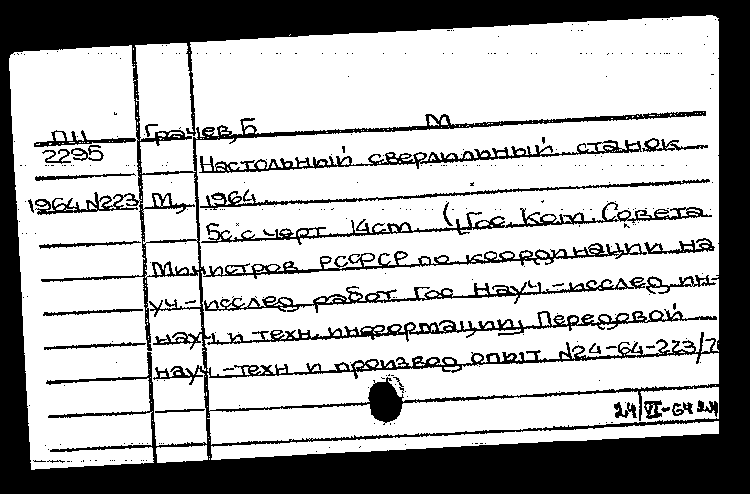 ПИ Грачев, Б М
2295
Настольный сверлильный станок
1964 N223 М, 1964
5с. с черт 14см (Гос. Ком. Совета
Министров РСФСР по координации на
уч.-исслед работ Гос Науч.-исслед ин-
науч. и техн. информации) Передовой
науч.-техн и производ опыт N24-64-223/7
24/VI-64